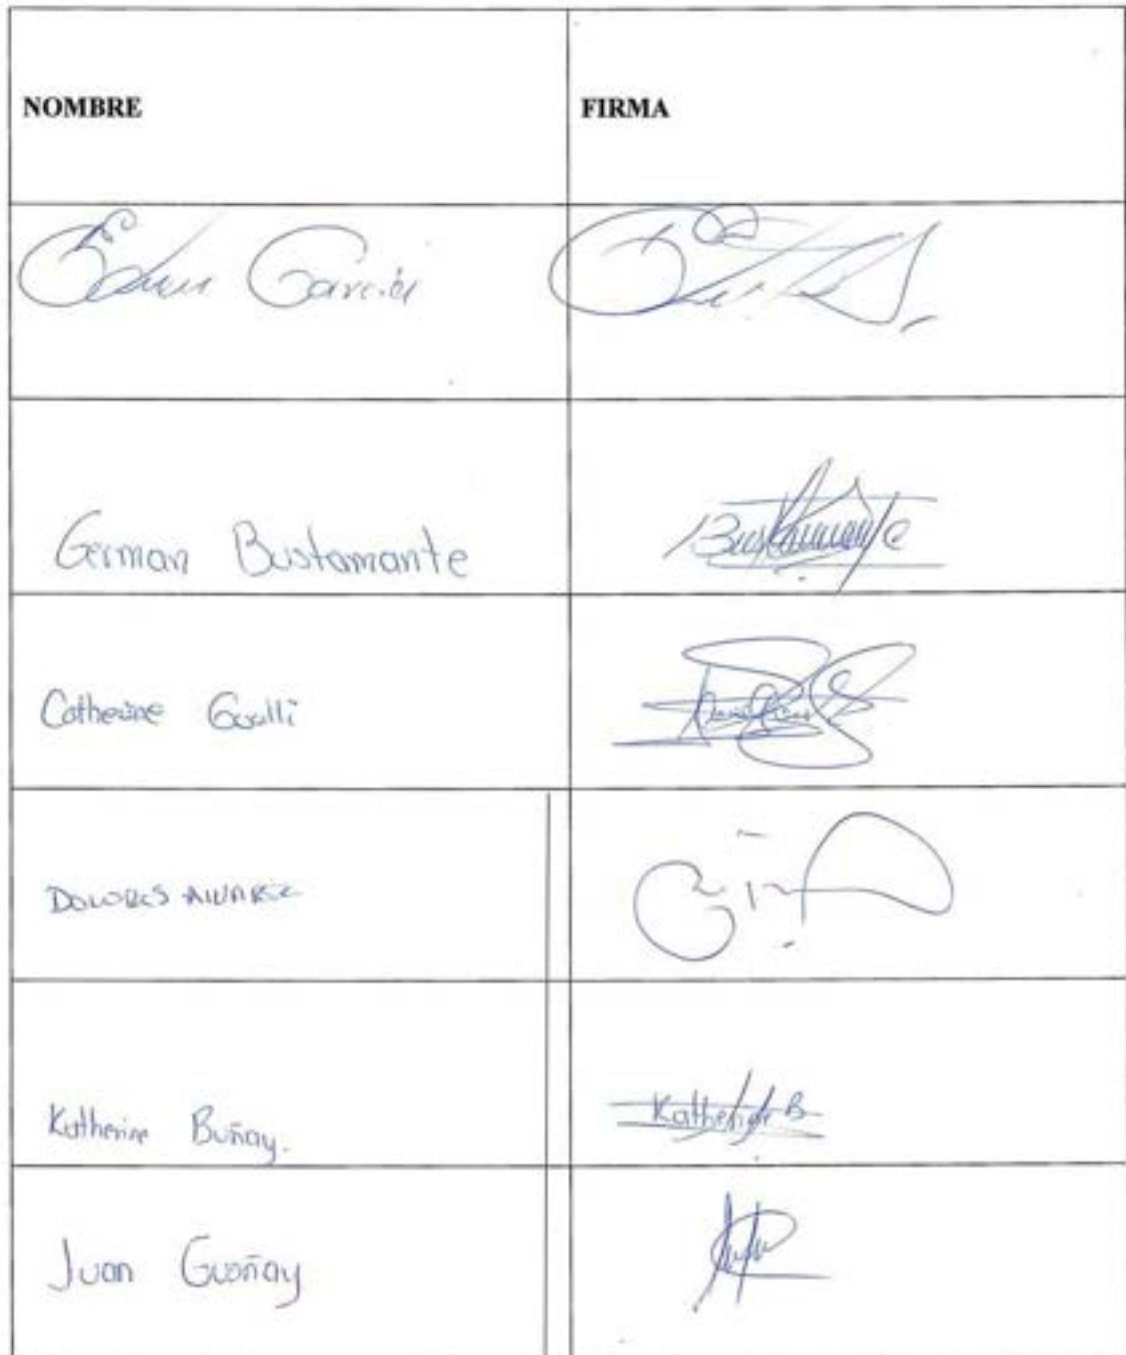 NOMBRE FIRMA
Edwin Garcia
German Bustamante Bustamante
Catherine Gualli
DOLORES ALVAREZ
Katherine Buñay. Katherine B
Juan Guañay